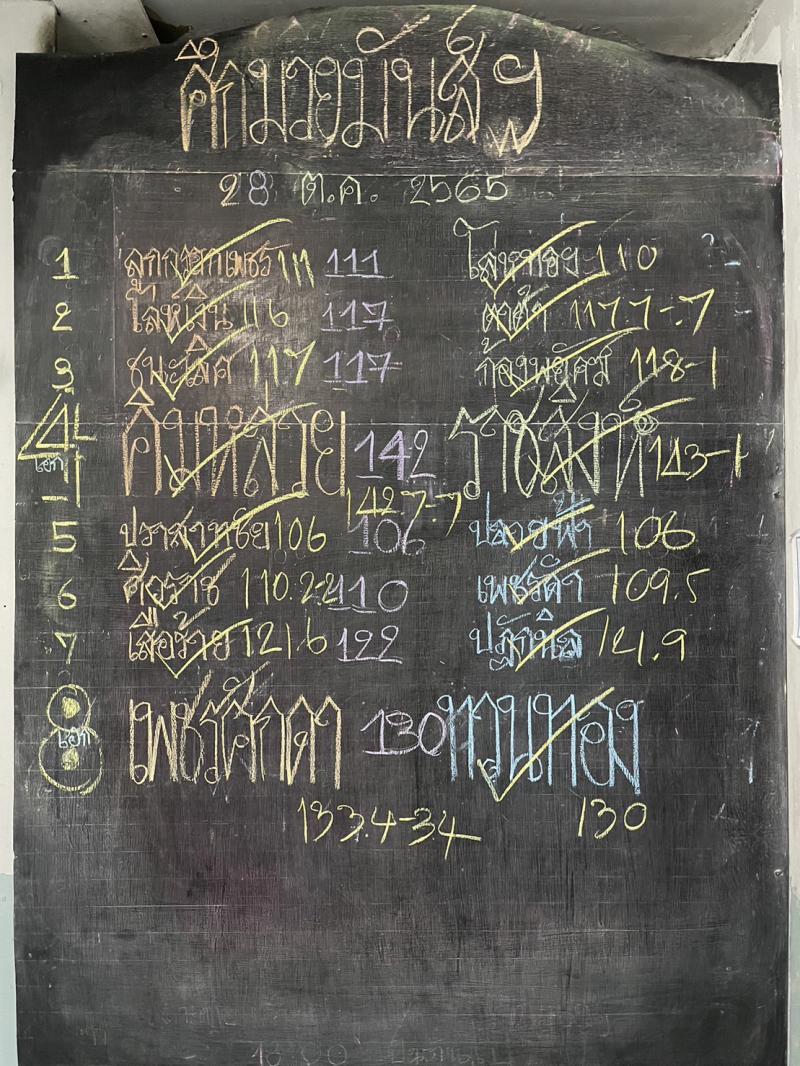 ศึกมวยมันส์ ฯ
28 ต.ค. 2565
1 111 111 110
2 โล่ห์เงิน 116 117 ตาต้า 117.7-.7
3 ชนะเลิศ 117 117 ก้องพยัคฆ์ 118-1
4 เอก คิมหล่วย 142 142.7-.7 ราชสิงห์ 143-1
5 ปราสาทชัย 106 106 ปลายฟ้า 106
6 ศิวราช 110.2-.2 110 เพชรดำ 109.5
7 เสือร้าย 121.6 122 121.9
8 เอก เพชรศิลาดา 130 ทวนทอง
133.4-3.4 130